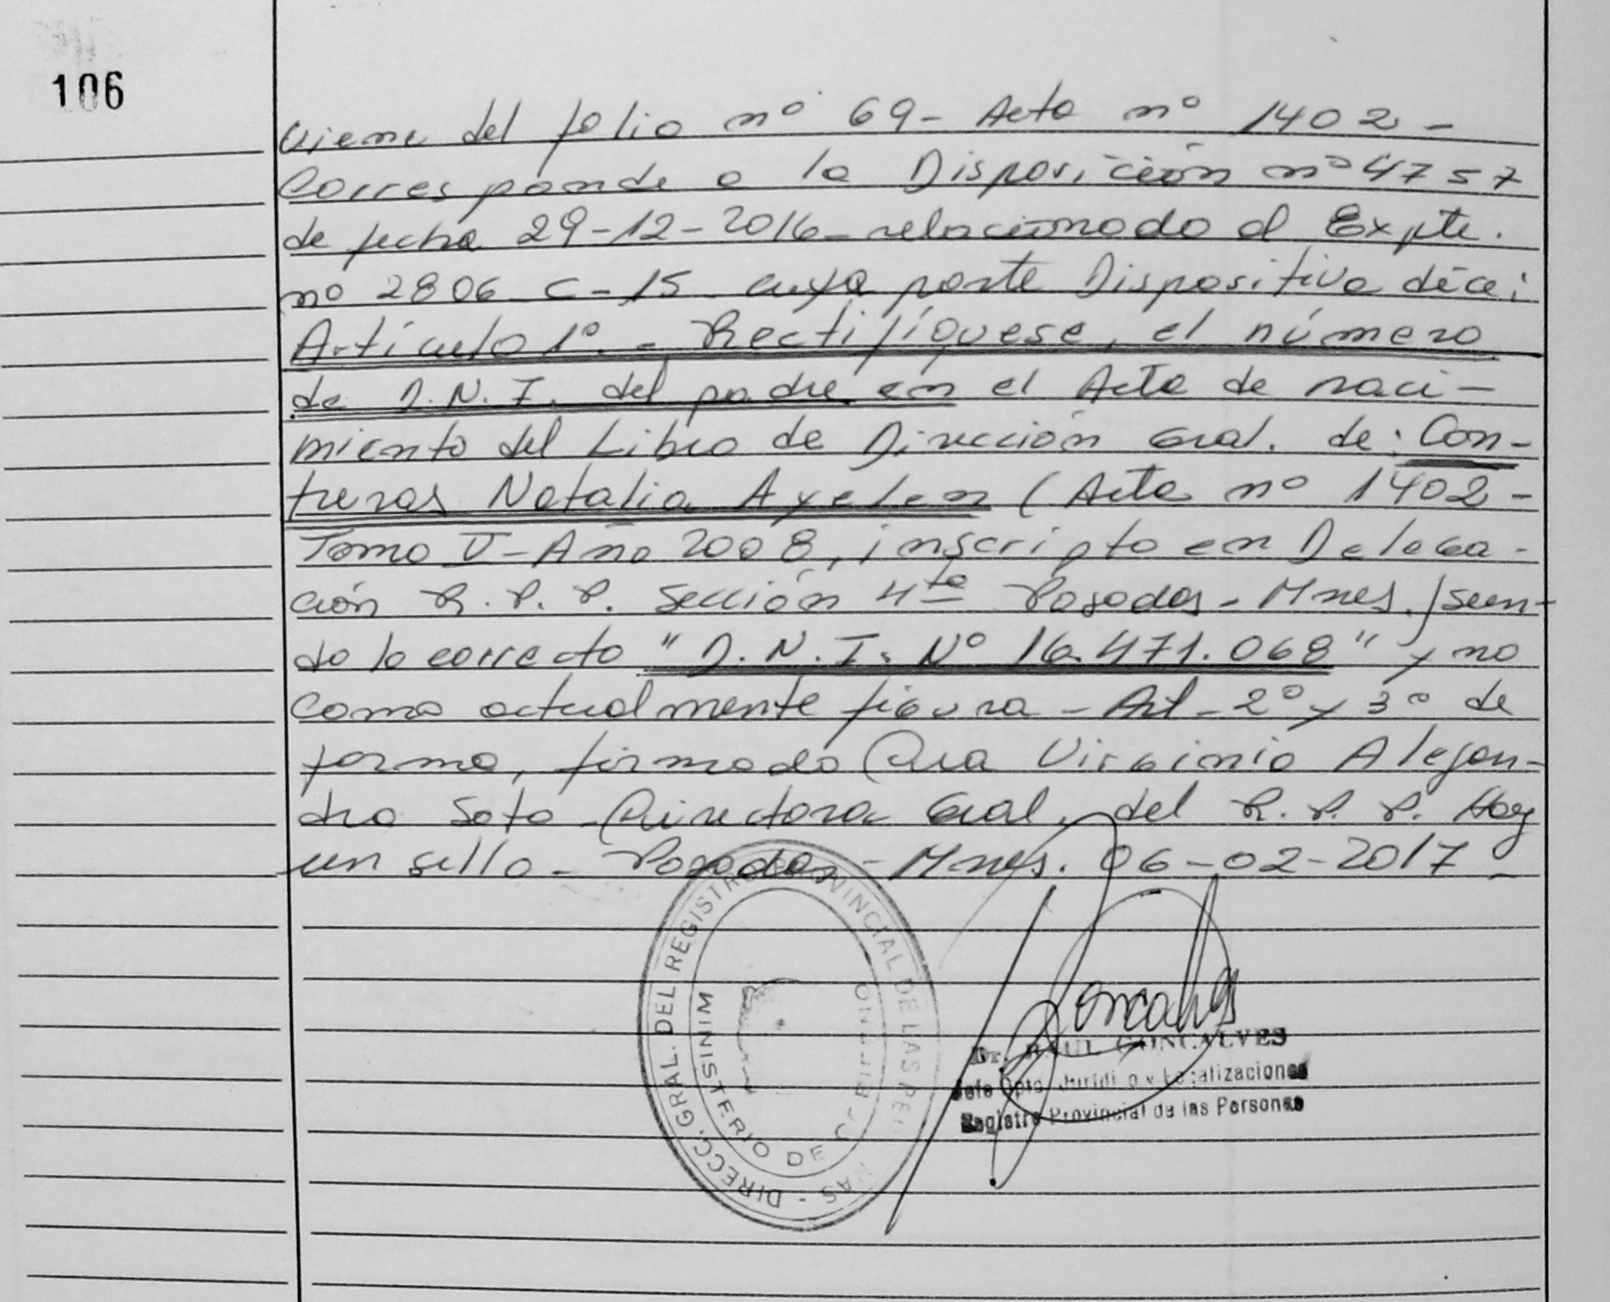 106
Viene del folio nº 69 - Acta nº 1402 -
Corresponde a la Disposición nº 4757
de fecha 29-12-2016 - relacionado al Expte.
nº 2806 - C - 15 - cuya parte Dispositiva dice:
Artículo 1º. - Rectifíquese, el número
de D.N.I. del padre en el Acta de naci-
miento del Libro de Dirección Gral. de: Con-
treras Natalia Ayelen (Acta nº 1402 -
Tomo V - Año 2008, inscripto en Delega-
ción R.P.P. Sección 4ta Posadas - Mnes.) sien-
do lo correcto "D.N.I. Nº 16.471.068" y no
como actualmente figura - Art - 2º y 3º de
forma, firmado Dra Virginia Alejan-
dra Soto - Directora Gral. del R.P.P. Hay
un sello - Posadas - Mnes. 06-02-2017 -
DIRECC. GRAL. DEL REGISTRO PROVINCIAL DE LAS PER
MINISTERIO DE GOBIERNO
Dr. RAUL GONCALVES
Jefe Dpto. Jurídico y Legalizaciones
Registro Provincial de las Personas